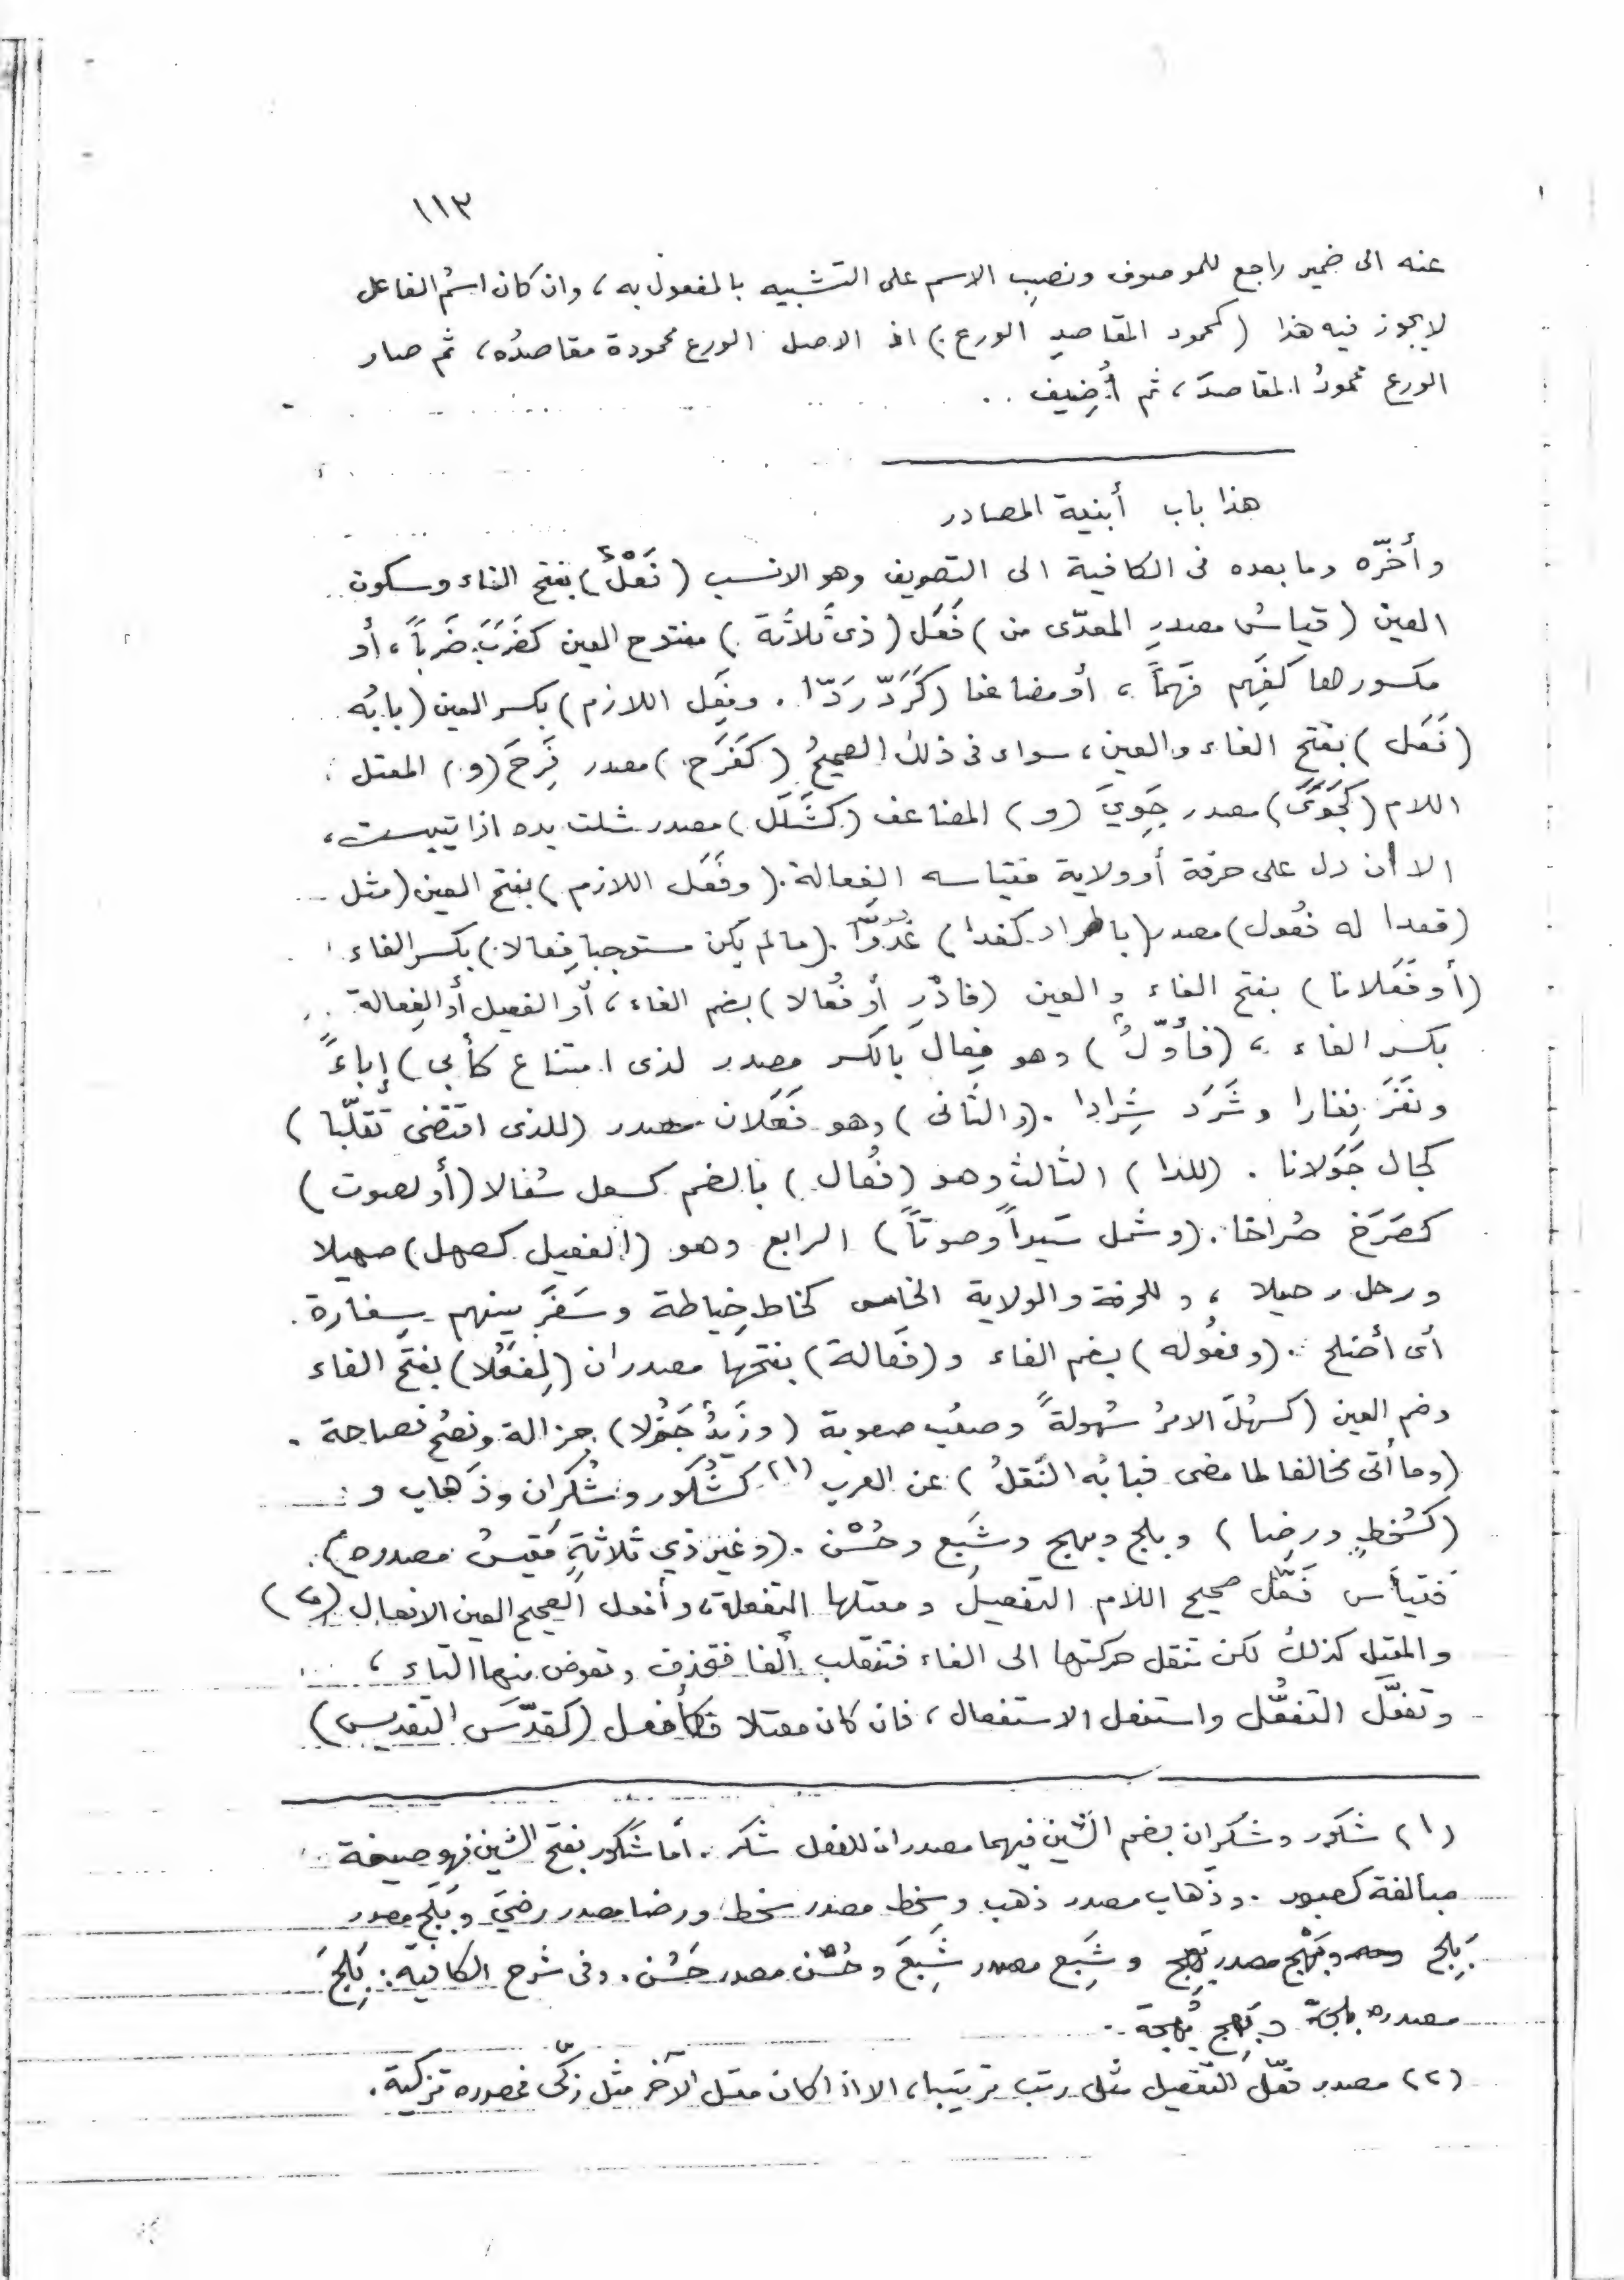 ١١٣
عنه الى ضمير راجع للموصوف ونصبِ الاسم على التشبيه بالمفعول به ، وان كان اسمُ الفاعل
لا يجوز فيه هذا ( كمحمود المقاصدِ الورع ) اذ الاصل الورع محمودة مقاصدُه ، ثم صار
الورع محمودُ المقاصدَ ، ثم أُضِيف . .
هذا باب أبنية المصادر
وأخّره وما بعده فى الكافية الى التصريف وهو الانسب ( فَعْلٌ ) بفتح الفاء وسكون
العين ( قياسُ مصدرِ المعدّى من ) فَعَل ( ذى ثَلاثَة ) مفتوح العين كضَرَبَ ضَرباً ، أو
مكسورها كفَهِم فَهماً ، أو مضاعفا ( كَرَدّ رَدّا . وفَعِل اللازم ) بكسر العين ( بابُه
( فَعَل ) بفتح الفاء والعين ، سواء فى ذلك الصحيحُ ( كفَرَح ) مصدر فَرِحَ ( و ) المعتل
اللام ( كجَوَىً ) مصدر جَوِيَ ( و ) المضاعف ( كشَلَل ) مصدر شلت يده اذا يبست ،
الا ان دل على حرفة أو ولاية فقياسه الفِعالة . ( وفَعَل اللازم ) بفتح العين ( مثل
( قعدا له فُعُول ) مصدر ( باطراد كغدا ) غُدُوّاً . ( مالم يكن مستوجبا فِعالا ) بكسر الفاء
( أو فَعَلانا ) بفتح الفاء والعين ( فادْرِ أو فُعالا ) بضم الفاء ، أو الفعيل أو الفِعالة
بكسر الفاء ، ( فأوّلٌ ) وهو فِعال بالكسر مصدر لذى امتناع كأبى ) إباءً
ونَفَرَ نِفارا وشَرَد شِرادا . ( والثانى ) وهو فَعَلان مصدر ( للذى اقتضى تقلّبا )
كجال جَوَلانا . ( للدا ) الثالث وهو ( فُعال ) بالضم كسعل سُعالا ( أو لصوت )
كصَرَخ صُراخا . ( وشمل سَيراً وصوتاً ) الرابع وهو ( الفعيل كصهل ) صهيلا
ورحل رحيلا ، وللحرفة والولاية الخامس كخاط خِياطة وسَفَرَ بينهم سِفارة .
أى أصلح . ( وفُعُوله ) بضم الفاء و ( فَعَالة ) بفتحها مصدران ( لِفَعُلا ) بفتح الفاء
وضم العين ( كسهُلَ الامرُ سُهولةً وصعُب صعوبة ( وزَيدٌ جَزُلا ) جزالة وفصُح فصاحة .
( وما أتى مخالفا لما مضى فبابُه النَّقلُ ) عن العرب (١) كشُكور وشُكران وذَهاب و
( كسُخطٍ ورِضا ) وبلج وبهج وشِبَع وحُسْن . ( وغير ذي ثلاثةٍ مَقيسُ مصدره )
فقياس فَعَّل صحيح اللام التفعيل ومعتلها التفعلة ، وأفعل الصحيح العين الافعال (٢)
والمعتل كذلك لكن تنقل حركتها الى الفاء فتنقلب ألفا فتحذف وتعوض منها التاء ،
وتفعَّل التفعُّل واستفعل الاستفعال ، فان كان معتلا فكأفعل ( كقدّسَ التقديس )
(١) شكور وشكران بضم الشين فيهما مصدران للفعل شكر . أما شَكور بفتح الشين فهو صيغة
مبالغة كصبور . وذَهاب مصدر ذهب وسخط مصدر سخط ورضا مصدر رضيَ وبَلَج مصدر
بَلِج وبَهْج مصدر بَهِج وشِبَع مصدر شَبِعَ وحُسْن مصدر حَسُن . وفى شرح الكافية : بَلِجَ
مصدره بلجة وبَهِج بَهجة .
(٢) مصدر فعّل التفعيل مثل رتب ترتيبا ، الا اذا كان معتل الآخر مثل زكّى فمصدره تزكية .